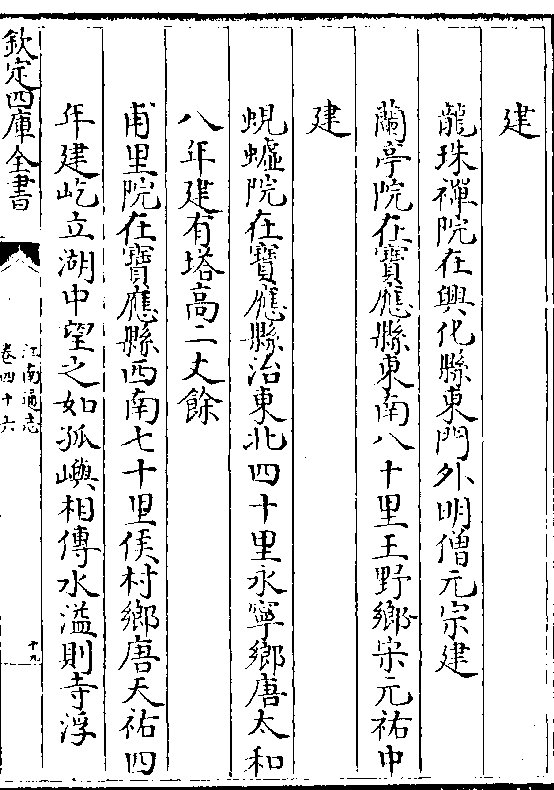 建
龍珠禪院在興化縣東門外明僧元宗建
蘭亭院在寶應縣東南八十里王野鄉宋元祐中
建
蜆墟院在寶應縣治東北四十里永寧鄉唐太和
八年建有塔高二丈餘
甫里院在寶應縣西南七十里侯村鄉唐天祐四
年建屹立湖中望之如孤嶼相傳水溢則寺浮
欽定四庫全書
江南通志
卷四十六
十九